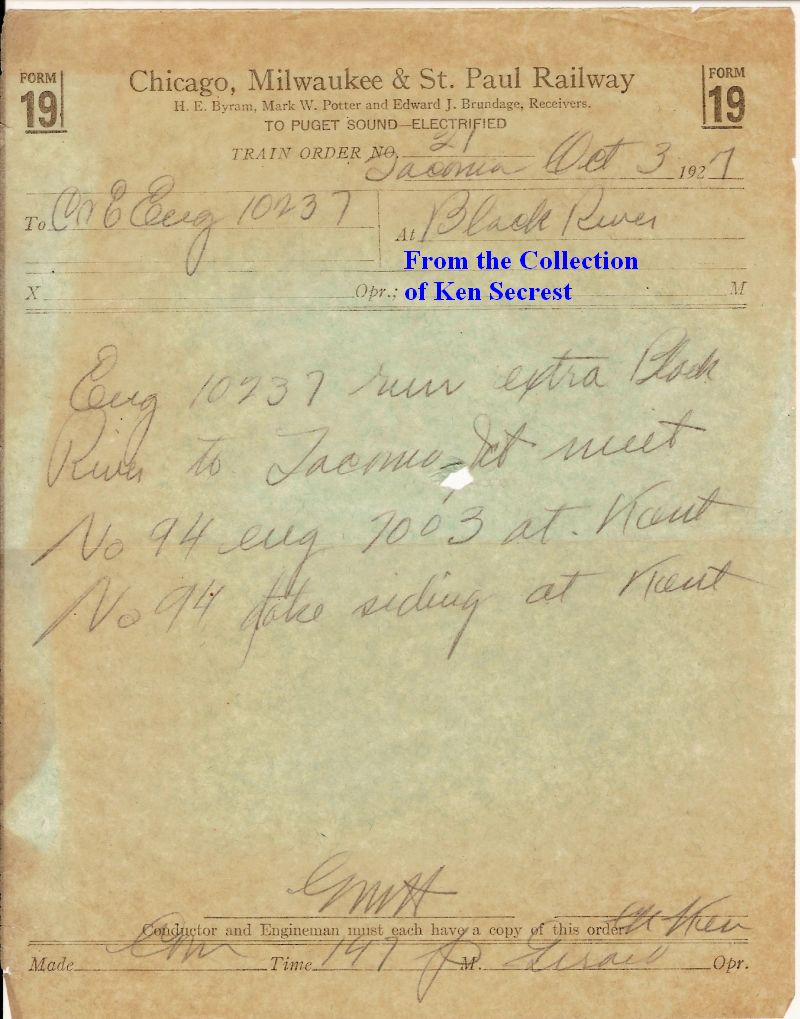 FORM 19
Chicago, Milwaukee & St. Paul Railway
FORM 19
H. E. Byram, Mark W. Potter and Edward J. Brundage, Receivers.
TO PUGET SOUND—ELECTRIFIED
TRAIN ORDER NO. 21
Tacoma Oct 3 1927
To C&E Eng 10237 At Black River
From the Collection
of Ken Secrest
X Opr.; M
Eng 10237 run extra Black
River to Tacoma Jct meet
No 94 eng 7003 at Kent
No 94 take siding at Kent
Conductor and Engineman must each have a copy of this order.
Made Com Time 147 P M. Opr.